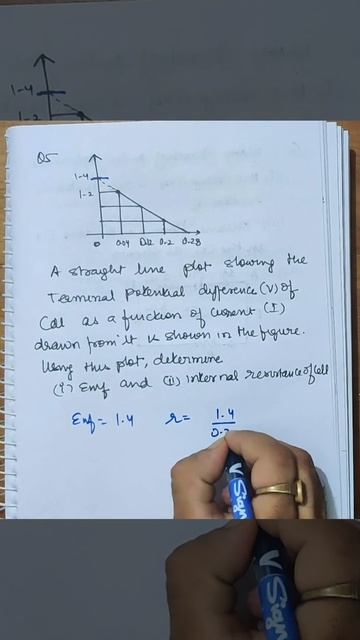 1-4
1-2
Q5
1-4
1-2
0 0.04 0.12 0.2 0.28
A straight line plot showing the
Terminal potential difference (V) of
Cell as a function of current (I)
drawn from it is shown in the figure.
Using this plot, determine
(i) Emf and (ii) internal resistance of cell
Emf = 1.4 r = 1.4
0.2
Sign